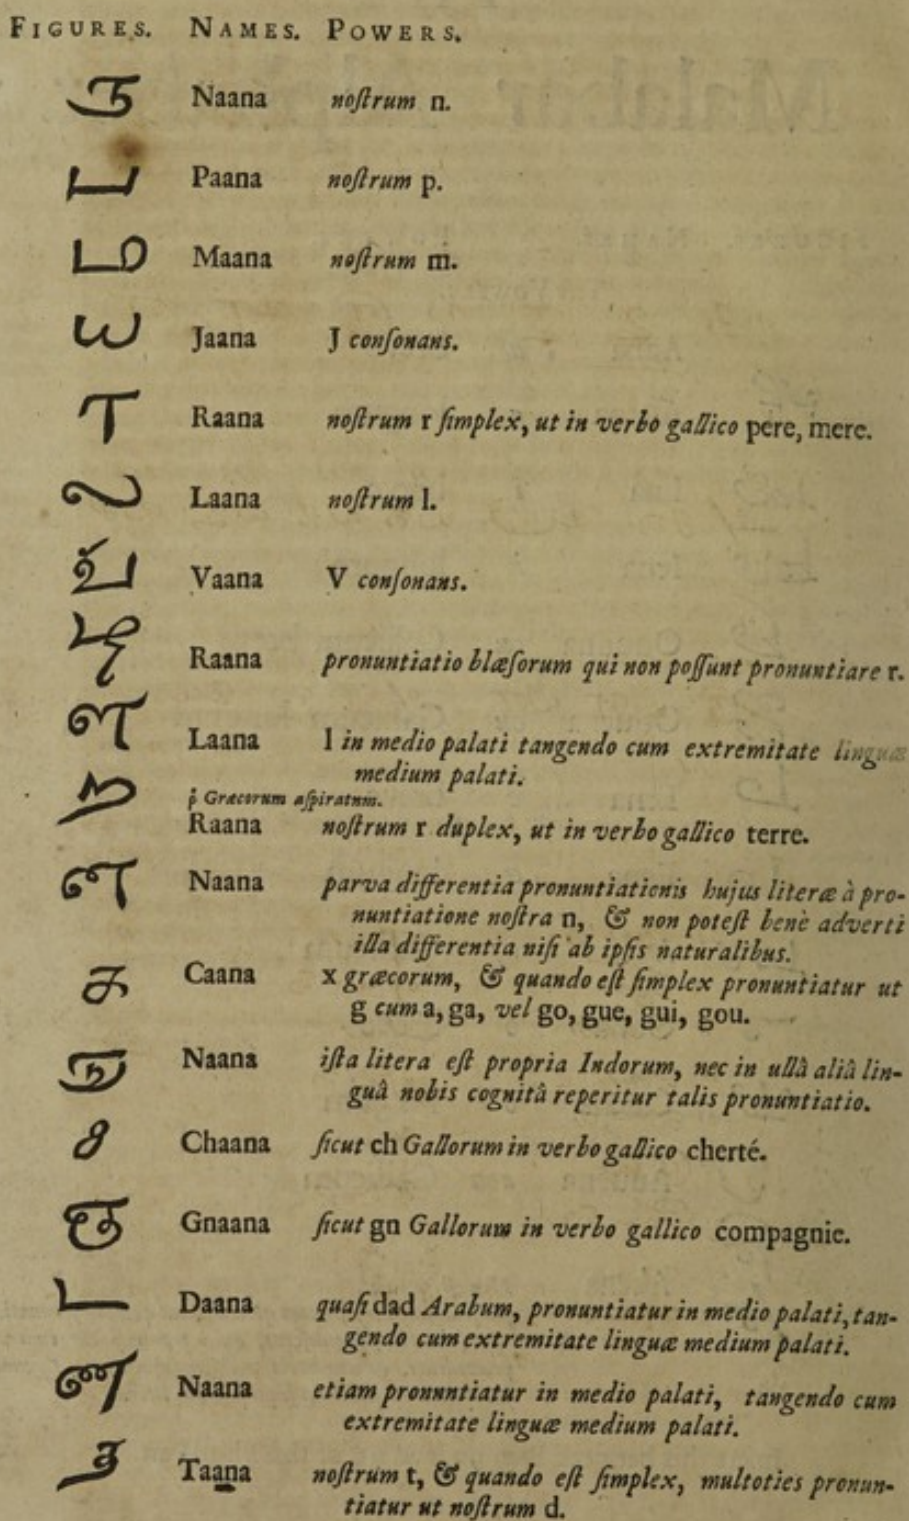 FIGURES. NAMES. POWERS.
ந Naana noſtrum n.
ப Paana noſtrum p.
ம Maana noſtrum m.
ய Jaana J conſonans.
ர Raana noſtrum r ſimplex, ut in verbo gallico pere, mere.
ல Laana noſtrum l.
வ Vaana V conſonans.
ழ Raana pronuntiatio blæſorum qui non poſſunt pronuntiare r.
ள Laana l in medio palati tangendo cum extremitate linguæ
medium palati.
ῥ Græcorum aſpiratum.
ற Raana noſtrum r duplex, ut in verbo gallico terre.
ன Naana parva differentia pronuntiationis hujus literæ à pro-
nuntiatione noſtra n, & non poteſt benè adverti
illa differentia niſi ab ipſis naturalibus.
க Caana x græcorum, & quando eſt ſimplex pronuntiatur ut
g cum a, ga, vel go, gue, gui, gou.
ங Naana iſta litera eſt propria Indorum, nec in ullâ aliâ lin-
guâ nobis cognitâ reperitur talis pronuntiatio.
ச Chaana ſicut ch Gallorum in verbo gallico cherté.
ஞ Gnaana ſicut gn Gallorum in verbo gallico compagnie.
ட Daana quaſi dad Arabum, pronuntiatur in medio palati, tan-
gendo cum extremitate linguæ medium palati.
ண Naana etiam pronnntiatur in medio palati, tangendo cum
extremitate linguæ medium palati.
த Taana noſtrum t, & quando eſt ſimplex, multoties pronun-
tiatur ut noſtrum d.